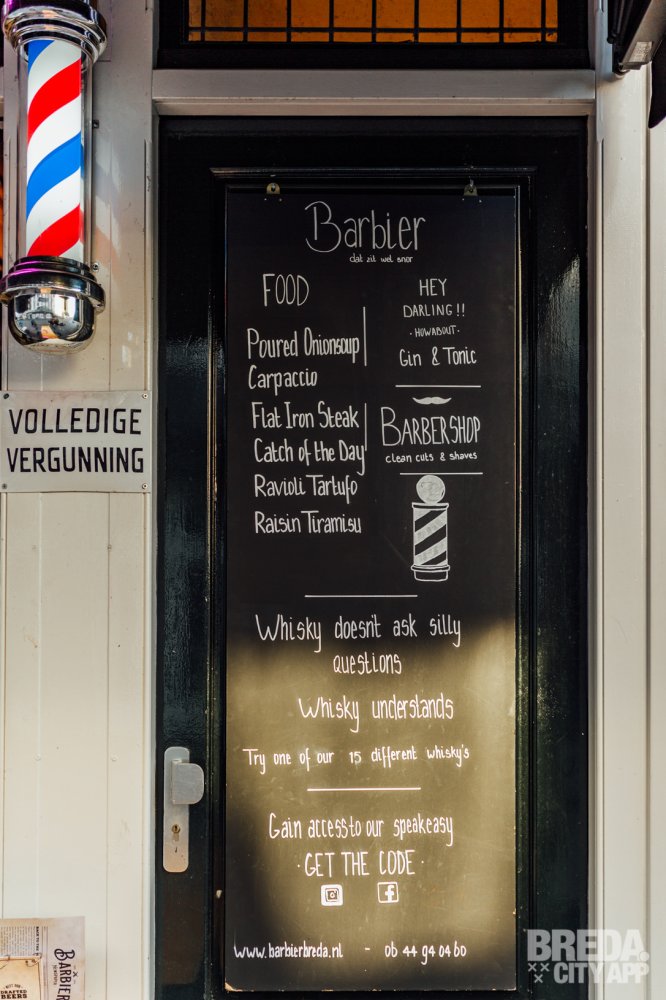 Barbier
dat zit wel snor
FOOD
Poured Onionsoup
Carpaccio
Flat Iron Steak
Catch of the Day
Ravioli Tartufo
Raisin Tiramisu
HEY
DARLING!!
·HOWABOUT·
Gin & Tonic
BARBERSHOP
clean cuts & shaves
Whisky doesn't ask silly
questions
Whisky understands
Try one of our 15 different whisky's
Gain access to our speakeasy
·GET THE CODE·
www.barbierbreda.nl - 06 44 94 04 60
VOLLEDIGE
VERGUNNING
BARBIER
CRAFTED
BEERS
BREDA.
CITY APP